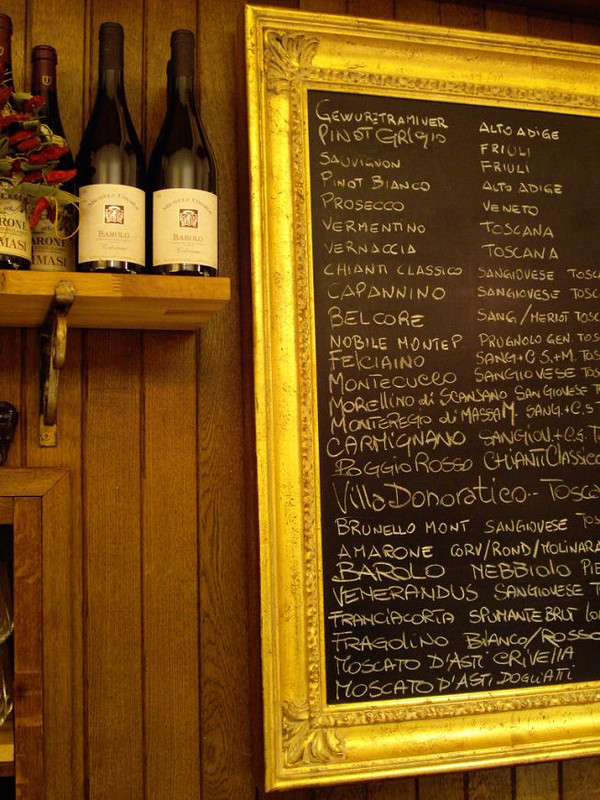 MICHELE CHIARLO
BAROLO
MICHELE CHIARLO
BAROLO
MASI
MASI
GEWURZTRAMINER ALTO ADIGE
PINOT GRIGIO FRIULI
SAUVIGNON FRIULI
PINOT BIANCO ALTO ADIGE
PROSECCO VENETO
VERMENTINO TOSCANA
VERNACCIA TOSCANA
CHIANTI CLASSICO SANGIOVESE TOSC
CAPANNINO SANGIOVESE TOSC
BELCORE SANG/MERLOT TOS
NOBILE MONTEP PRUGNOLO GEN. TOS
FELCIAINO SANG+C.S.+M. TOS
MONTECUCCO SANGIOVESE TOS
MORELLINO di SCANSANO SANGIOVESE T
MONTEREGO di MASSA M. SANG.+C.S
CARMIGNANO SANGIOV.+C.S. T
POGGIO ROSSO CHIANTI CLASSICO
Villa Donoratico.. TOSCA
BRUNELLO MONT SANGIOVESE TOS
AMARONE CORV/ROND/MOLINARA
BAROLO NEBBIOLO PIE
VENERANDUS SANGIOVESE T
FRANCIACORTA SPUMANTE BRUT LO
FRAGOLINO BIANCO/ROSSO
MOSCATO D'ASTI CRIVELLA
MOSCATO D'ASTI DOGLIATTI